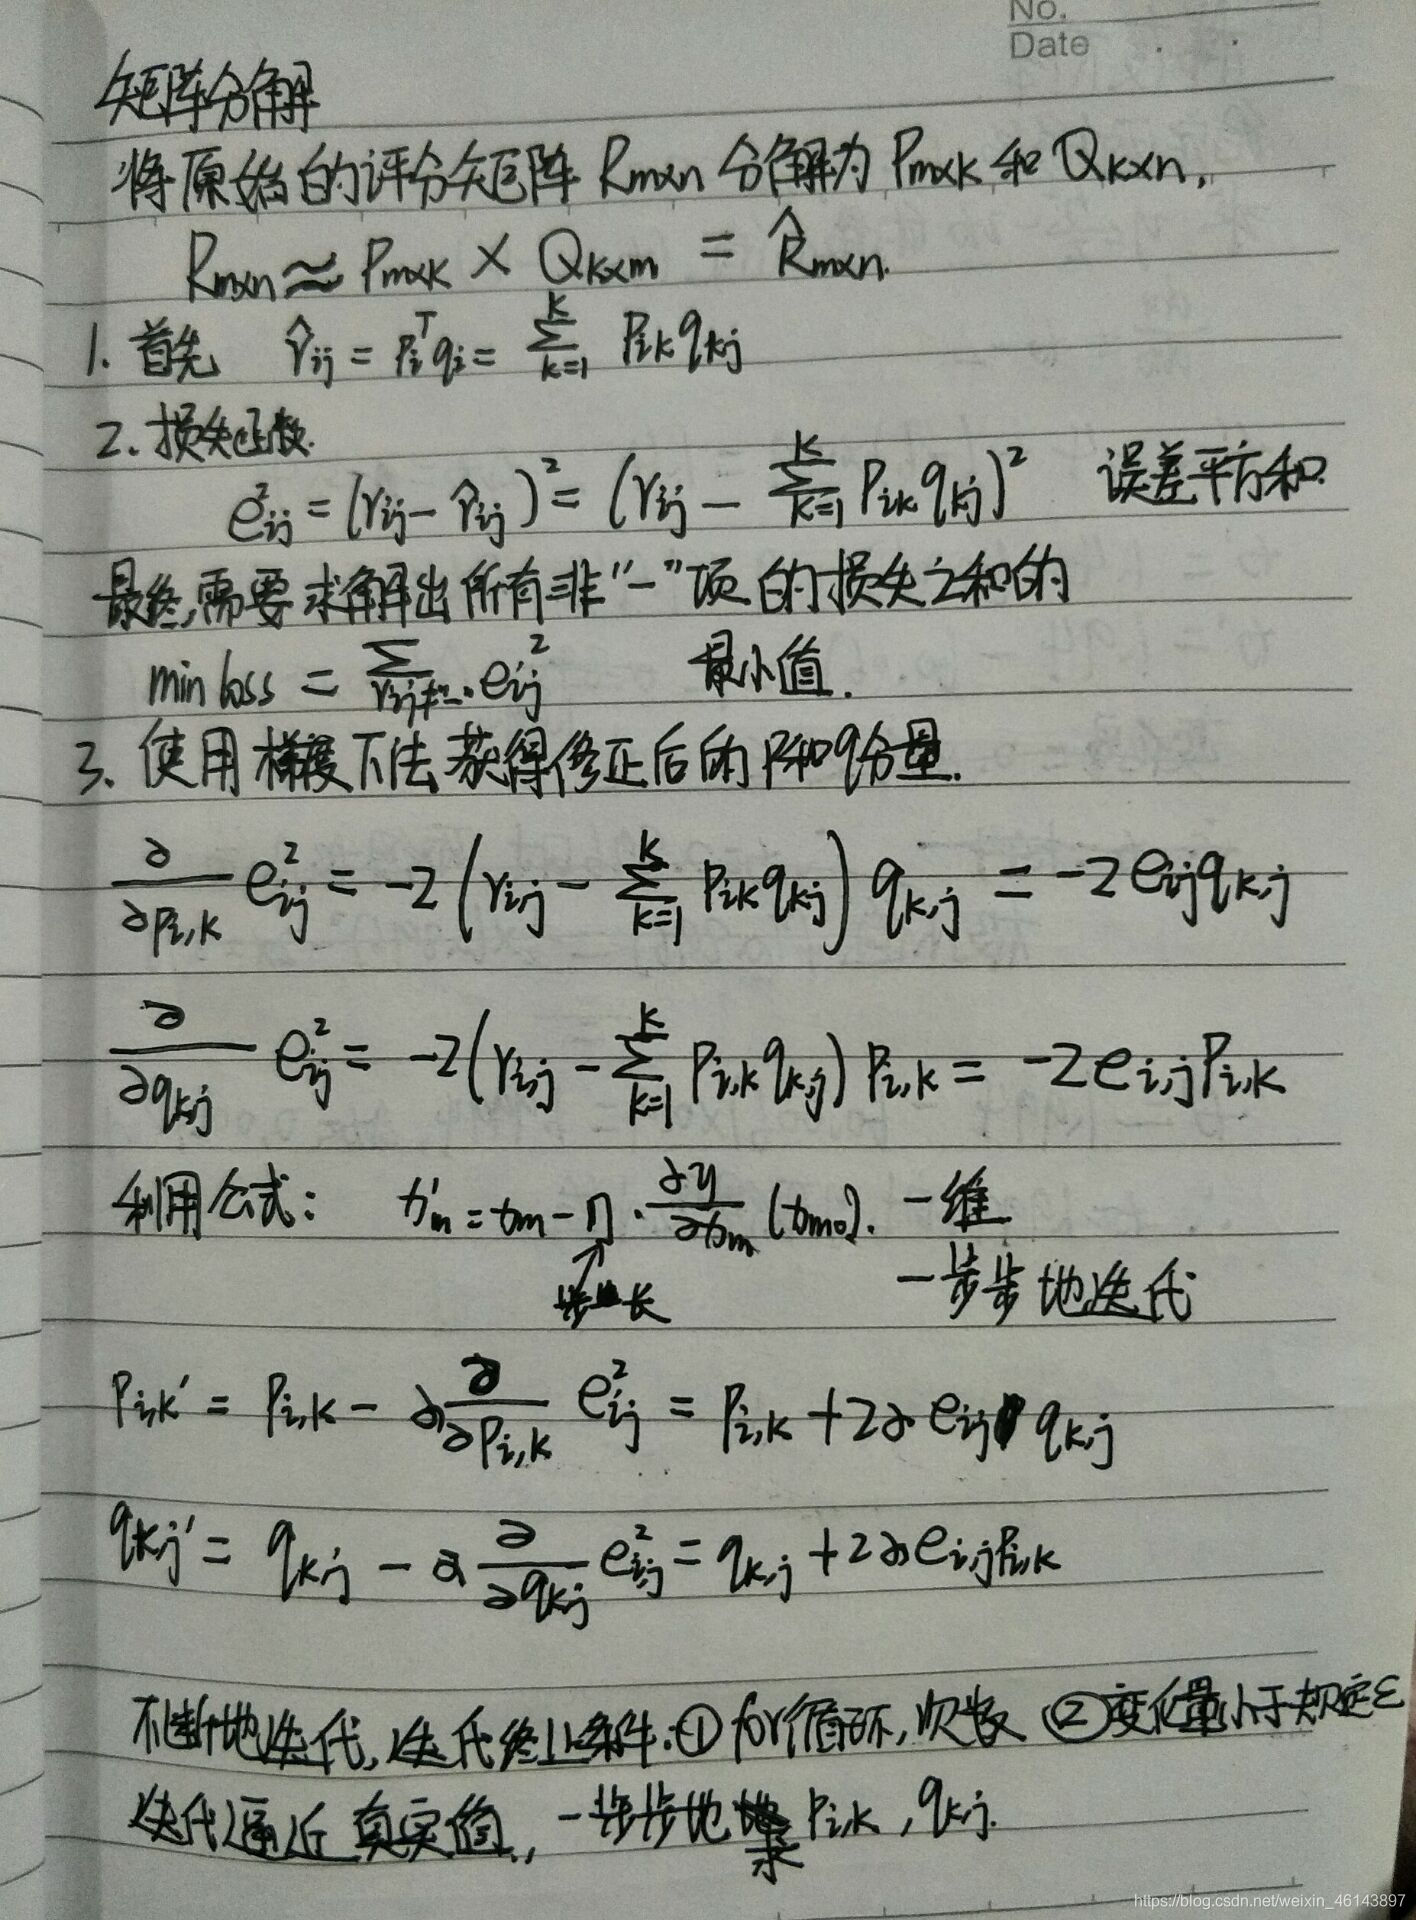 No.
Date
矩阵分解
将原始的评分矩阵 Rm×n 分解为 Pm×k 和 Qk×n,
Rm×n ≈ Pm×k × Qk×m = R̂m×n.
1. 首先 r̂ij = pi^T qj = Σ_{k=1}^{K} pik qkj
2. 损失函数.
e²ij = (rij - r̂ij)² = (rij - Σ_{k=1}^{K} pik qkj)² 误差平方和.
最终,需要求解出所有非“-”项的损失之和的
min loss = Σ_{rij≠-} eij² 最小值.
3. 使用梯度下法获得修正后的p和q分量.
∂/∂pi,k e²ij = -2(ri,j - Σ_{k=1}^{K} pik qkj) qk,j = -2eij qk,j
∂/∂qkj e²ij = -2(ri,j - Σ_{k=1}^{K} pi,k qk,j) pi,k = -2ei,j pi,k
利用公式: xm' = xm - η · ∂y/∂xm (xm0). 一维
步长 一步步地迭代
pi,k' = pi,k - α ∂/∂pi,k e²ij = pi,k + 2α eij qk,j
qkj' = qk,j - α ∂/∂qkj e²ij = qk,j + 2α ei,j pi,k
不断地迭代, 迭代终止条件:① for循环, 次数 ② 变化量小于规定ε
迭代逼近真实值, 一步步地求 pi,k , qkj.
https://blog.csdn.net/weixin_46143897